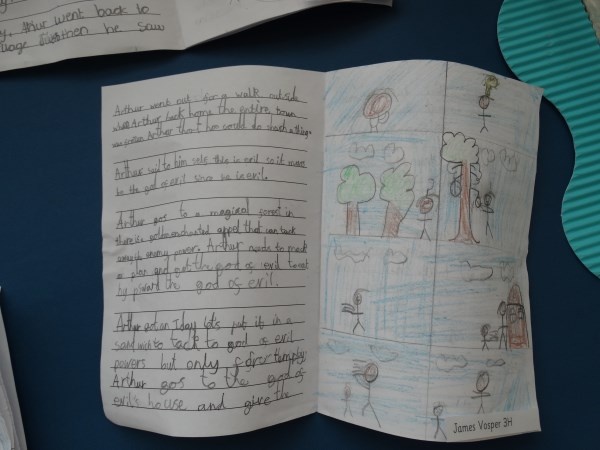 y. Arthur went back to
then he saw
Arthur went out for a walk outside
Arthur back home the entire town
was Arthur that who could do such a thing
Arthur said to him self this is evil so it must
be the god of evil since he is evil.
Arthur gos to a magical forest in
there is enchanted appel that can tack
away enemy power. Arthur needs to
a plan and get the god of evil to eat
the god of evil.
Arthur got an Iday lets put it in a
sand wich to tack to god of evil
powers but only
Arthur gos to the god of
evil's house and give the
James Vosper 3H